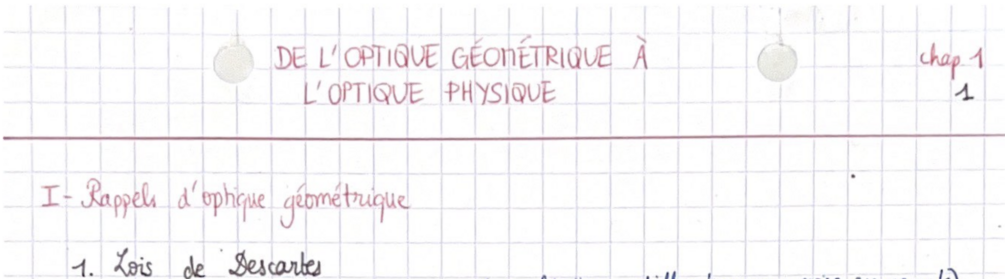 DE L'OPTIQUE GÉOMÉTRIQUE À
L'OPTIQUE PHYSIQUE
chap 1
1
I- Rappels d'optique géométrique
1. Lois de Descartes